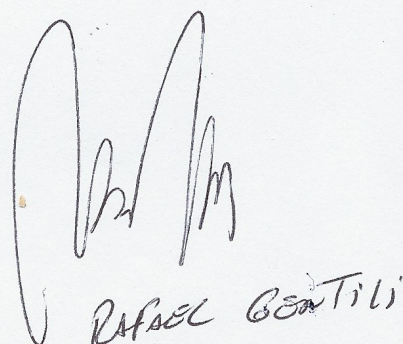 RAFAEL GENTILI